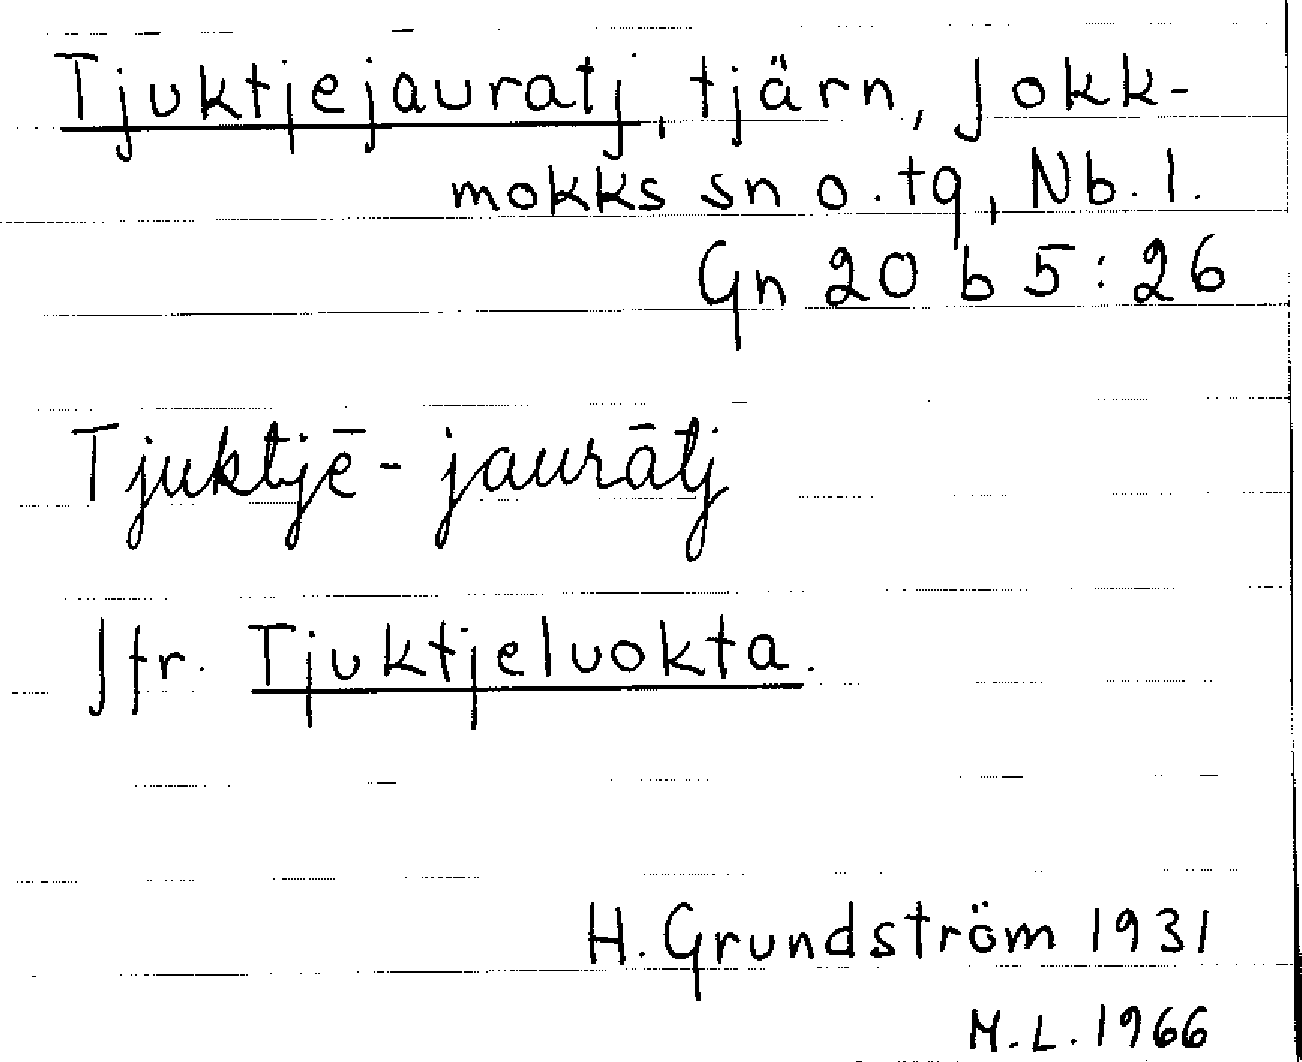 Tjuktjejauratj, tjärn, Jokk-
mokks sn o. tg, Nb. l.
Gn 20 b 5:26
Tjuktjē-jaurātj
Jfr. Tjuktjeluokta.
H. Grundström 1931
M.L. 1966